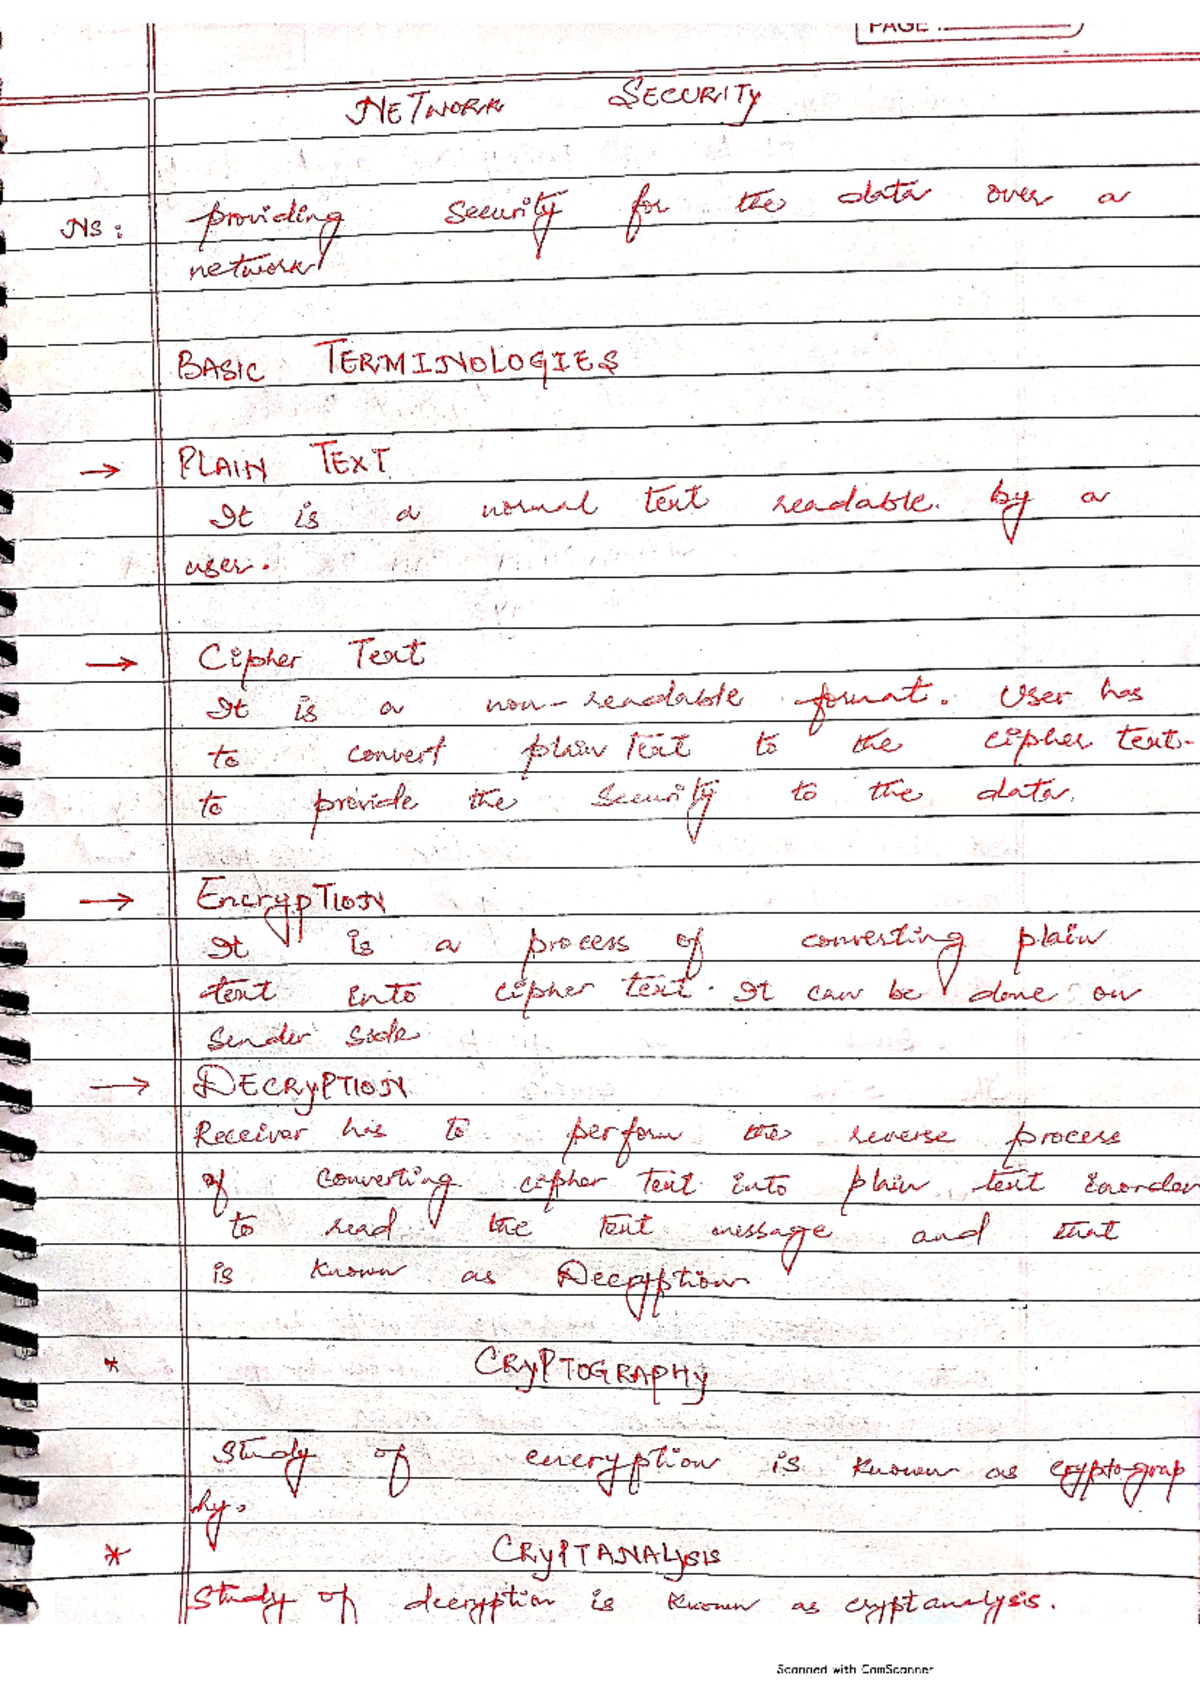 PAGE :
NETWORK SECURITY
NS: providing security for the data over a
network
BASIC TERMINOLOGIES
→ PLAIN TEXT
It is a normal text readable. by a
user.
→ Cipher Text
It is a non-readable format. User has
to convert plain text to the cipher text-
to provide the security to the data.
→ EncrypTION
It is a process of converting plain
text into cipher text. It can be done on
Sender side
→ DECRYPTION
Receiver has to perform the reverse process
of converting cipher text into plain text inorder
to read the text message and that
is known as Decryption
* CRYPTOGRAPHY
Study of encryption is known as cryptograp
hy.
* CRYPTANALYSIS
Study of decryption is known as cryptanalysis.
Scanned with CamScanner